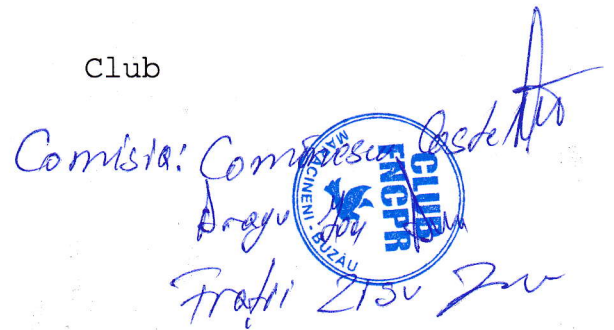 Club
Comisia: Comănescu Costel
Dragu Ion
Frații Zisu
CLUB
FNCPR
MĂRĂCINENI - BUZĂU